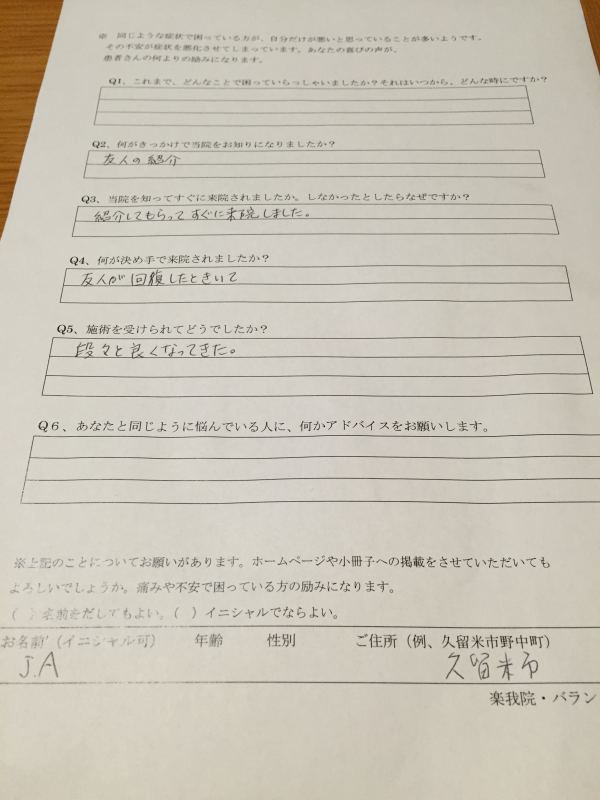 ※ 同じような症状で困っている方が、自分だけが悪いと思っていることが多いようです。
その不安が症状を悪化させてしまっています。あなたの喜びの声が、
患者さんの何よりの励みになります。
Q1、これまで、どんなことで困っていらっしゃいましたか？それはいつから、どんな時にですか？
Q2、何がきっかけで当院をお知りになりましたか？
友人の紹介
Q3、当院を知ってすぐに来院されましたか。しなかったとしたらなぜですか？
紹介してもらってすぐに来院しました。
Q4、何が決め手で来院されましたか？
友人が回復したときいて
Q5、施術を受けられてどうでしたか？
段々と良くなってきた。
Q6、あなたと同じように悩んでいる人に、何かアドバイスをお願いします。
※上記のことについてお願いがあります。ホームページや小冊子への掲載をさせていただいても
よろしいでしょうか。痛みや不安で困っている方の励みになります。
（ ）名前をだしてもよい。（ ）イニシャルでならよい。
お名前（イニシャル可） 年齢 性別 ご住所（例、久留米市野中町）
J.A 久留米市
楽我院・バラン